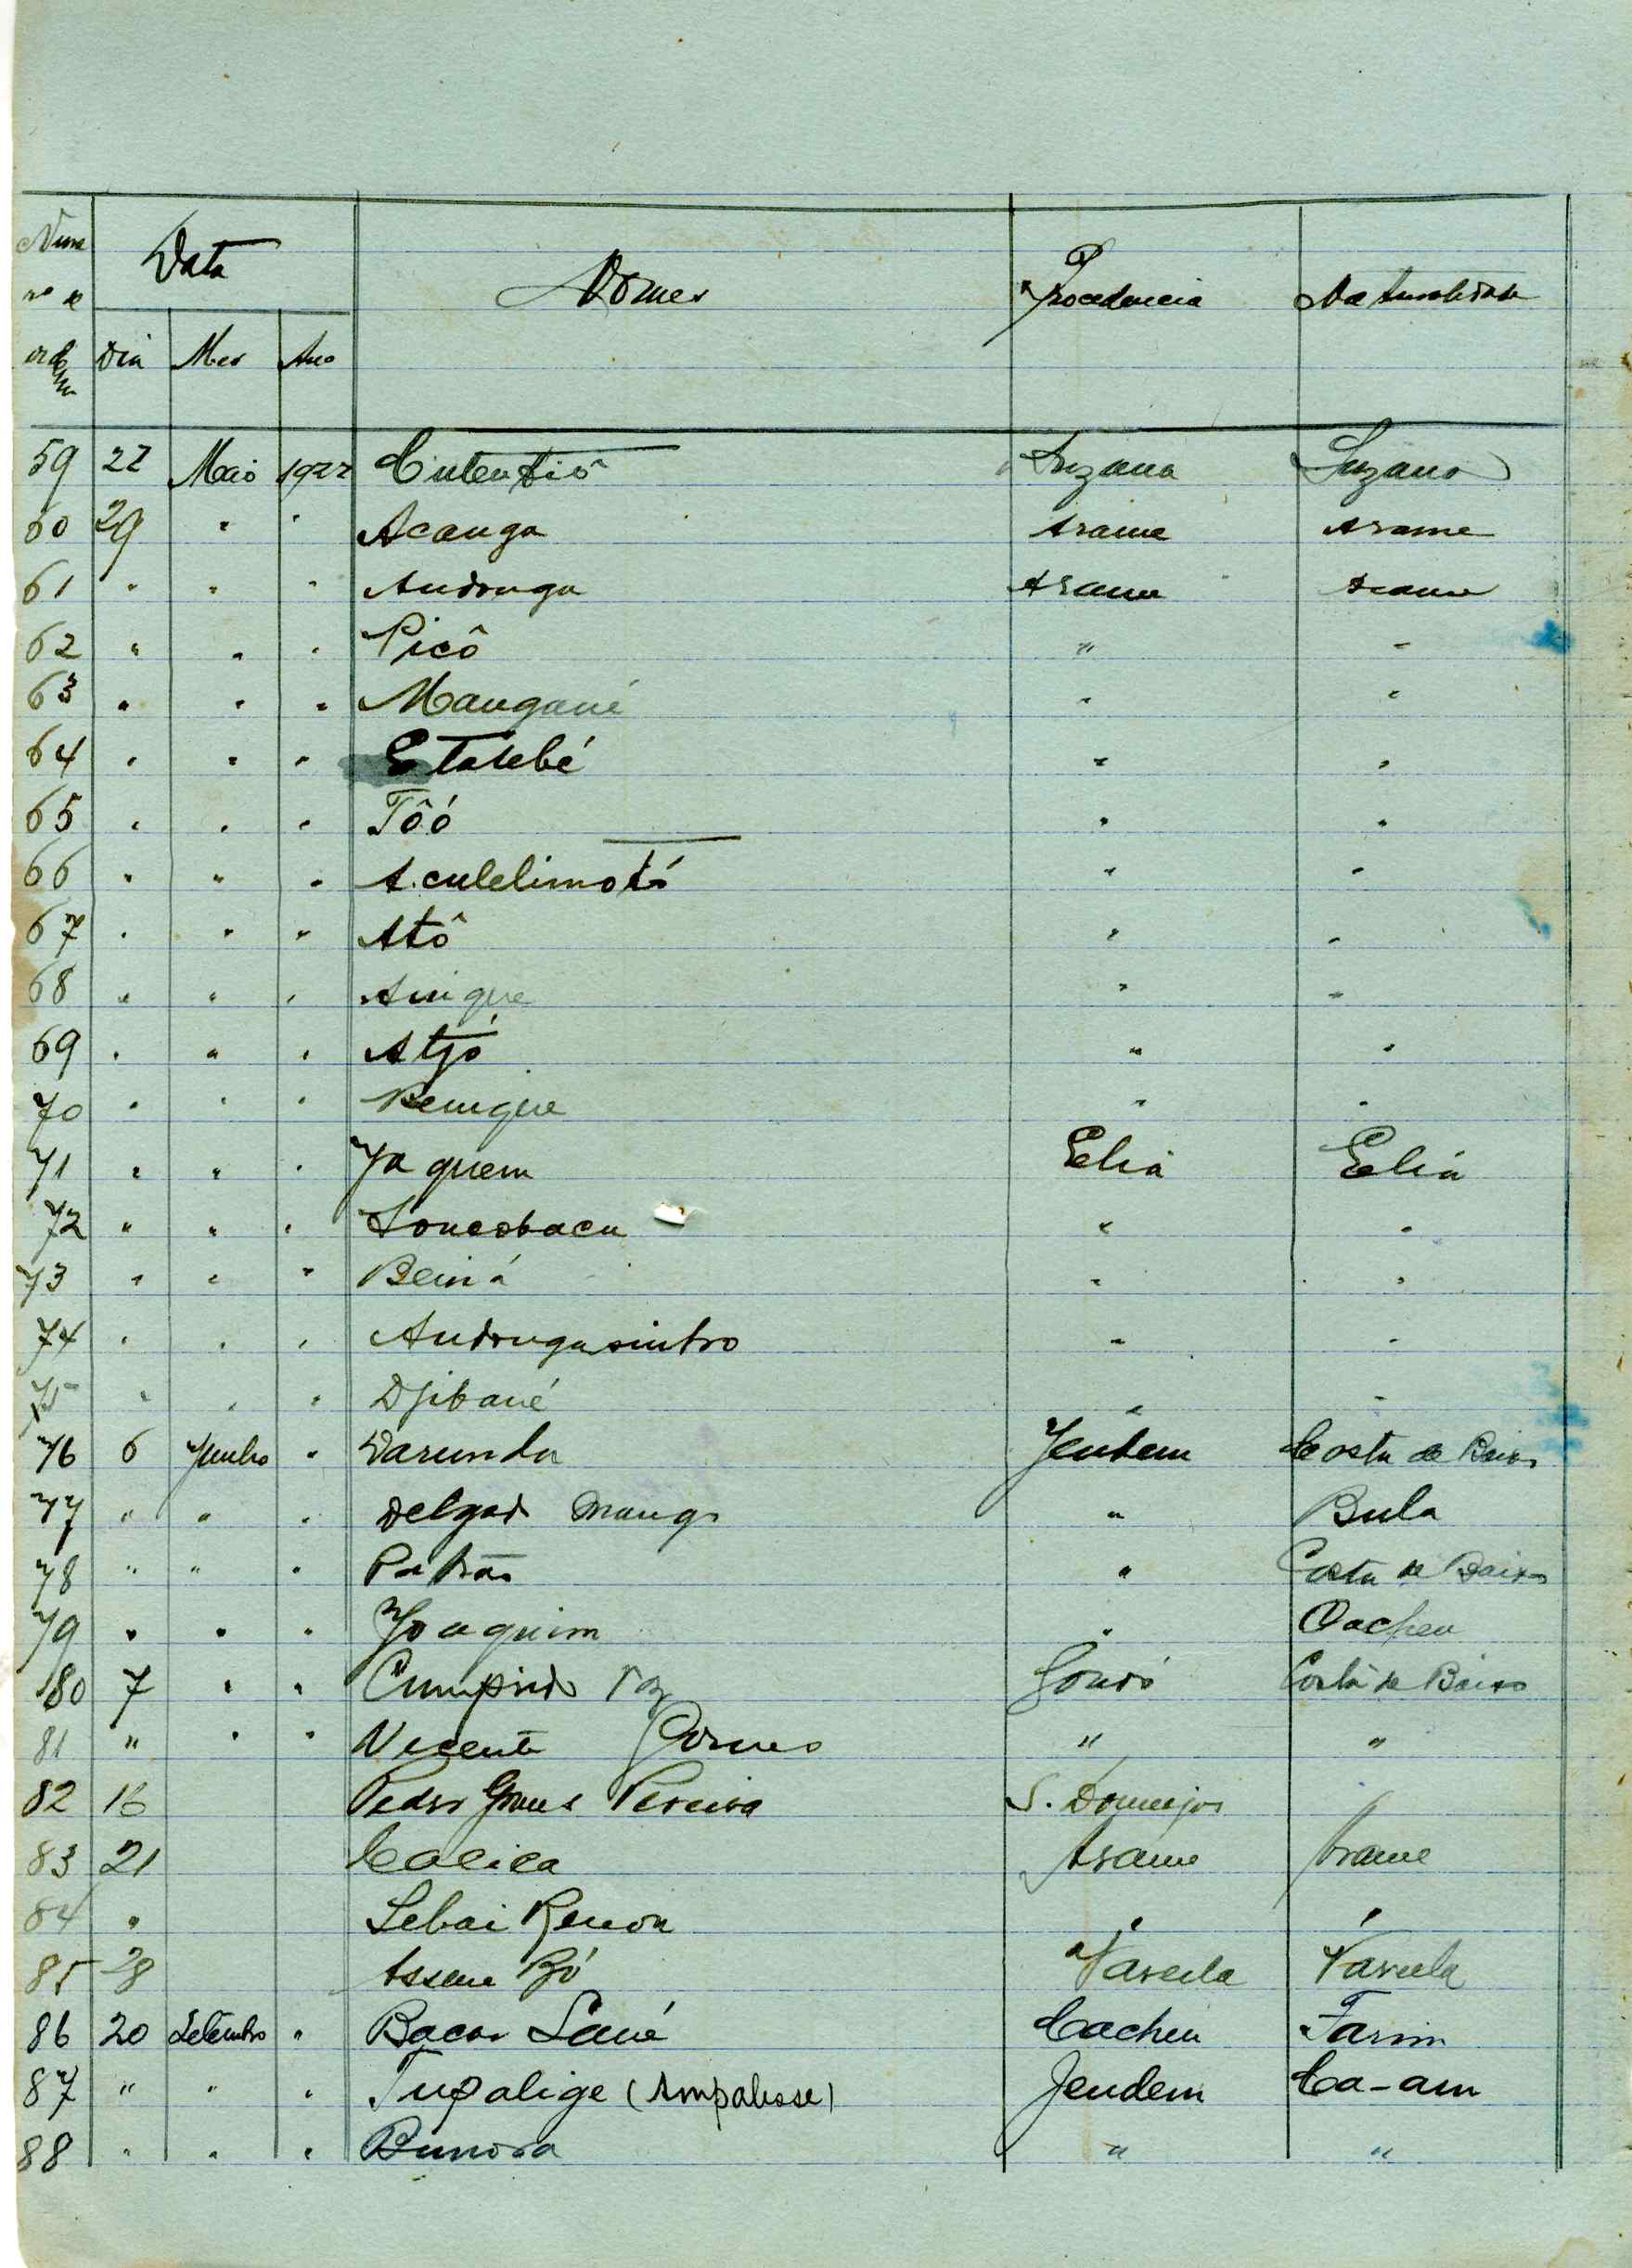 Numero de ordem Data Nomes Procedencia Naturalidade
Dia Mes Ano
59 22 Maio 1922 Cutentiô Suzana Suzana
60 29 " " Acanga Arame Arame
61 " " " Andonga Arame Arame
62 " " " Picô " "
63 " " " Mangané " "
64 " " " Etatebé " "
65 " " " Tôó " "
66 " " " Aculelimotó " "
67 " " " Atô " "
68 " " " " "
69 " " " Atjó " "
70 " " " " "
71 " " " Jaquem Eliá Eliá
72 " " " " "
73 " " " Beiná " "
74 " " " Andongasintro " "
75 " " " Djibané " "
76 6 Junho " Darunda Jendem Costa de Baixo
77 " " " Delgado Mango " Bula
78 " " " Patrão " Costa de Baixo
79 " " " Joaquim " Cacheu
80 7 " " Cumprido Vaz Costa de Baixo
81 " " " Vicente Gomes " "
82 16 Pedro Gomes Pereira S. Domingos "
83 21 Cacica Arame Arame
84 " Sebai " "
85 28 Varela Varela
86 20 Setembro " Bacar Sané Cacheu Farim
87 " " " Tupalige (Ampalisse) Jendem Ca-am
88 " " " Bunora " "